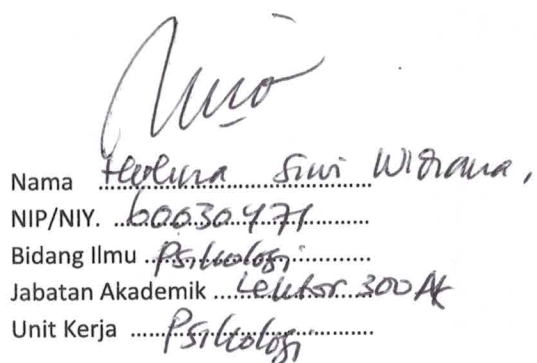 Nama ........ Siwi Widiana,
NIP/NIY. 60030471
Bidang Ilmu Psikologi
Jabatan Akademik Lektor 300 AK
Unit Kerja Psikologi